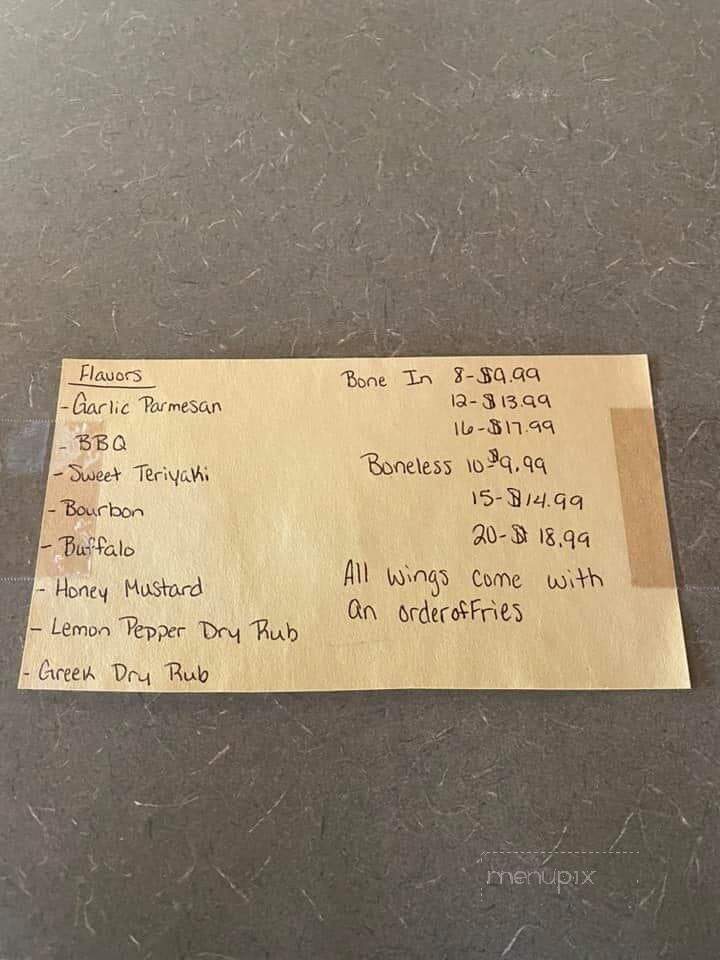 Flavors
- Garlic Parmesan
- BBQ
- Sweet Teriyaki
- Bourbon
- Buffalo
- Honey Mustard
- Lemon Pepper Dry Rub
- Greek Dry Rub
Bone In 8-$9.99
12-$13.99
16-$17.99
Boneless 10-$9.99
15-$14.99
20-$18.99
All wings come with
an order of Fries
menupix